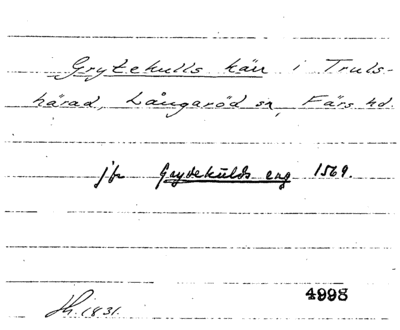 Grytekulls kärr i Truls-
härad, Långaröd sn, Färs hd.
jfr Grydekulds eng 1569.
4998
Jh. 1831.